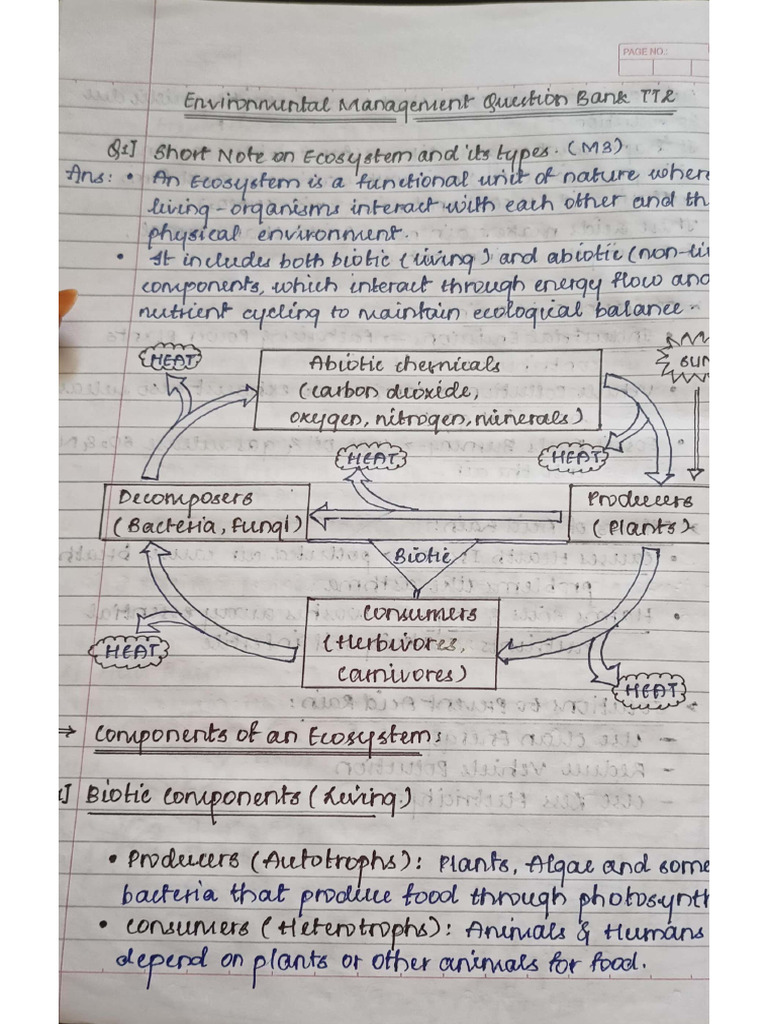 PAGE NO.:
Environmental Management Question Bank TT2
Q1] Short Note on Ecosystem and its types. (M3).
Ans: • An Ecosystem is a functional unit of nature where
living-organisms interact with each other and th
physical environment.
• It includes both biotic (living) and abiotic (non-li
components, which interact through energy flow and
nutrient cycling to maintain ecological balance.
HEAT
Abiotic chemicals
(carbon dioxide,
oxygen, nitrogen, minerals)
SUN
HEAT
HEAT
Decomposers
(Bacteria, fungi)
Producers
(Plants)
Biotic
Consumers
(Herbivores,
Carnivores)
HEAT
HEAT
→ Components of an Ecosystem:
] Biotic Components (Living)
• Producers (Autotrophs): Plants, Algae and some
bacteria that produce food through photosynth
• Consumers (Heterotrophs): Animals & Humans
depend on plants or other animals for food.